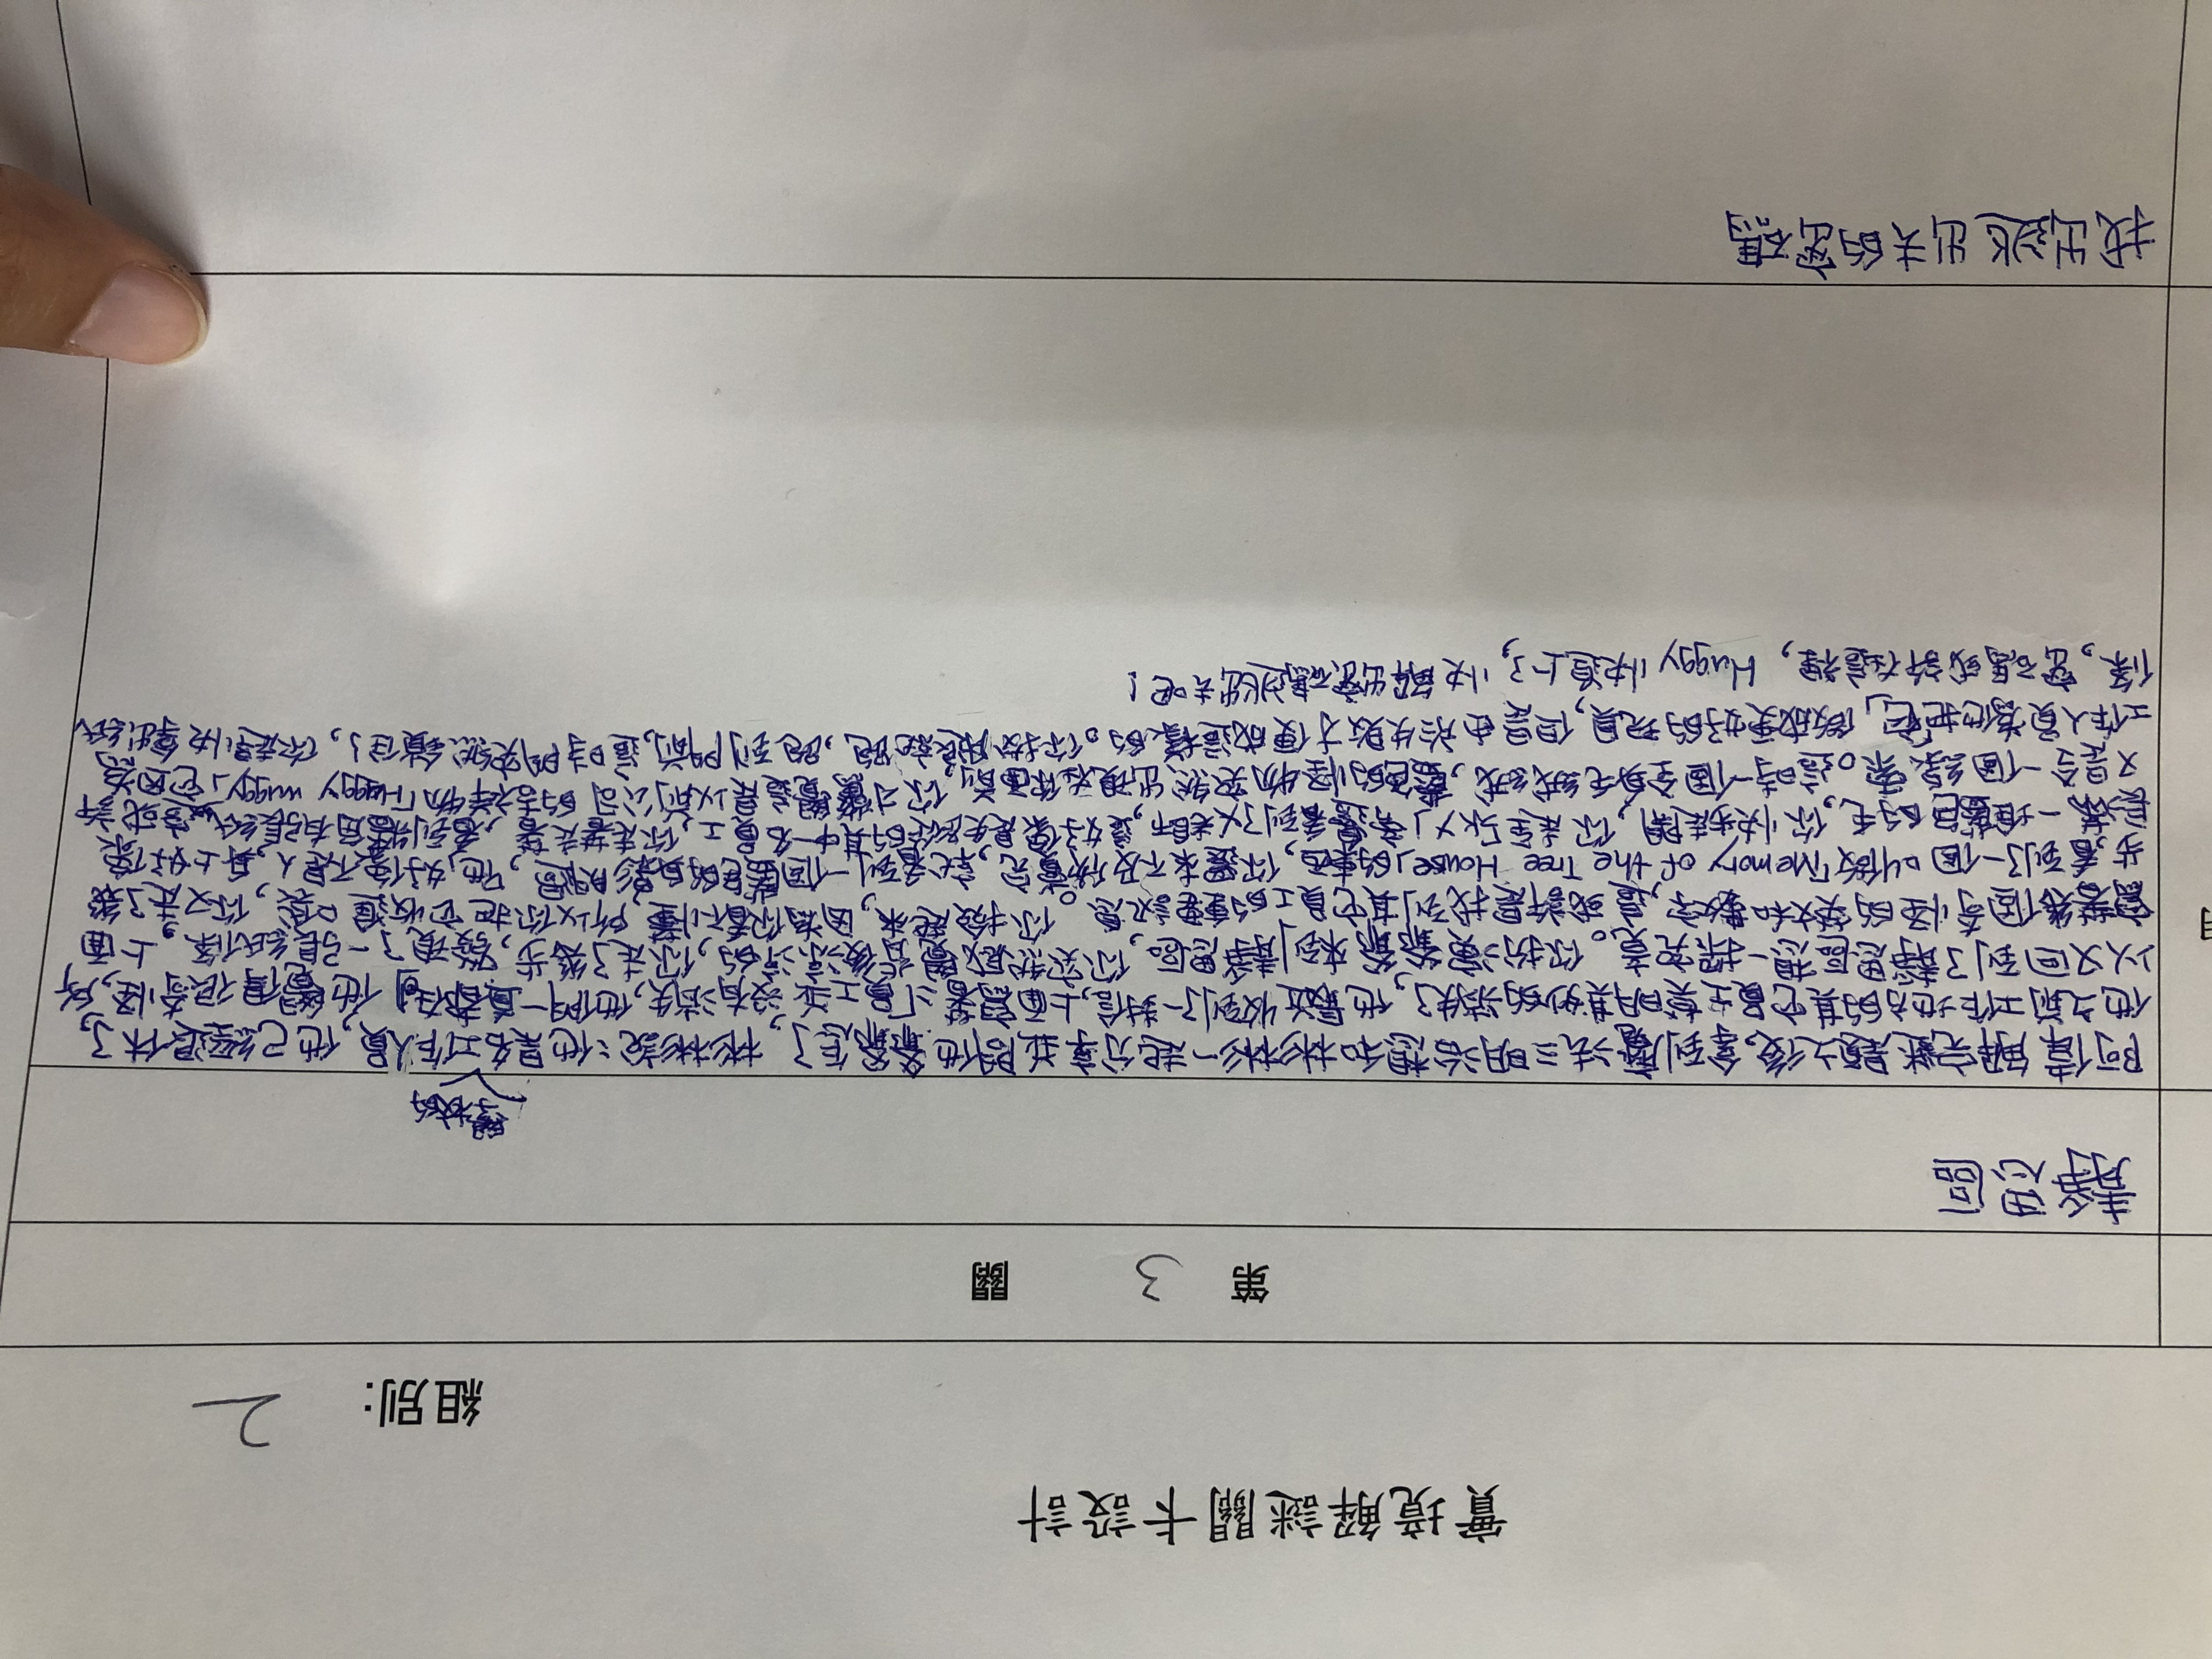 實境解謎關卡設計
組別: 2
第 3 關
靜思區
學校的
阿偉解完謎題之後,拿到魔法三明治想和彬彬一起分享並問他爺爺怎了,彬彬說:他是名工作人員,他已經退休了,
他之前工作地方的其它員工莫明其妙的消失了,他最近收到了一封信,上面寫著:「員工並沒有消失,他們一直都在。」他覺得很奇怪,所
以又回到了靜思區想一探究竟。你扮演爺爺來到靜思區,你突然感覺背後涼涼的,你走了幾步,發現了一張紙條,上面
寫著幾個奇怪的英文和數字,這或許是找到其它員工的重要訊息。你撿起來,因為你看不懂,所以你把它收進口袋,你又走了幾
步,看到了一個叫做「Memory of the Tree House」的東西,你還來不及欣賞完,就看到一個藍色的身影閃過,「牠」好像不是人,身上好像
長滿一堆藍色的毛,你快步走開,你走至「sky」旁邊看到了X老師,這好像是失蹤的其中一名員工,你走著走著,看到牆角有張紙,這或許
又是令一個線索。這時一個全身毛絨絨,藍色的怪物突然出現在你面前,你才驚覺這是以前公司的吉祥物「Huggy wuggy」它因為
工作人員為他把「它」做成更好的玩具,但是由於失敗才便成這樣的。你拔腿就跑,跑到門前,這時門突然鎖住了,你趕快拿出紙
條,密碼或許在這裡,Huggy快追上了,快解出密碼逃出去吧!
找出逃出去的密碼